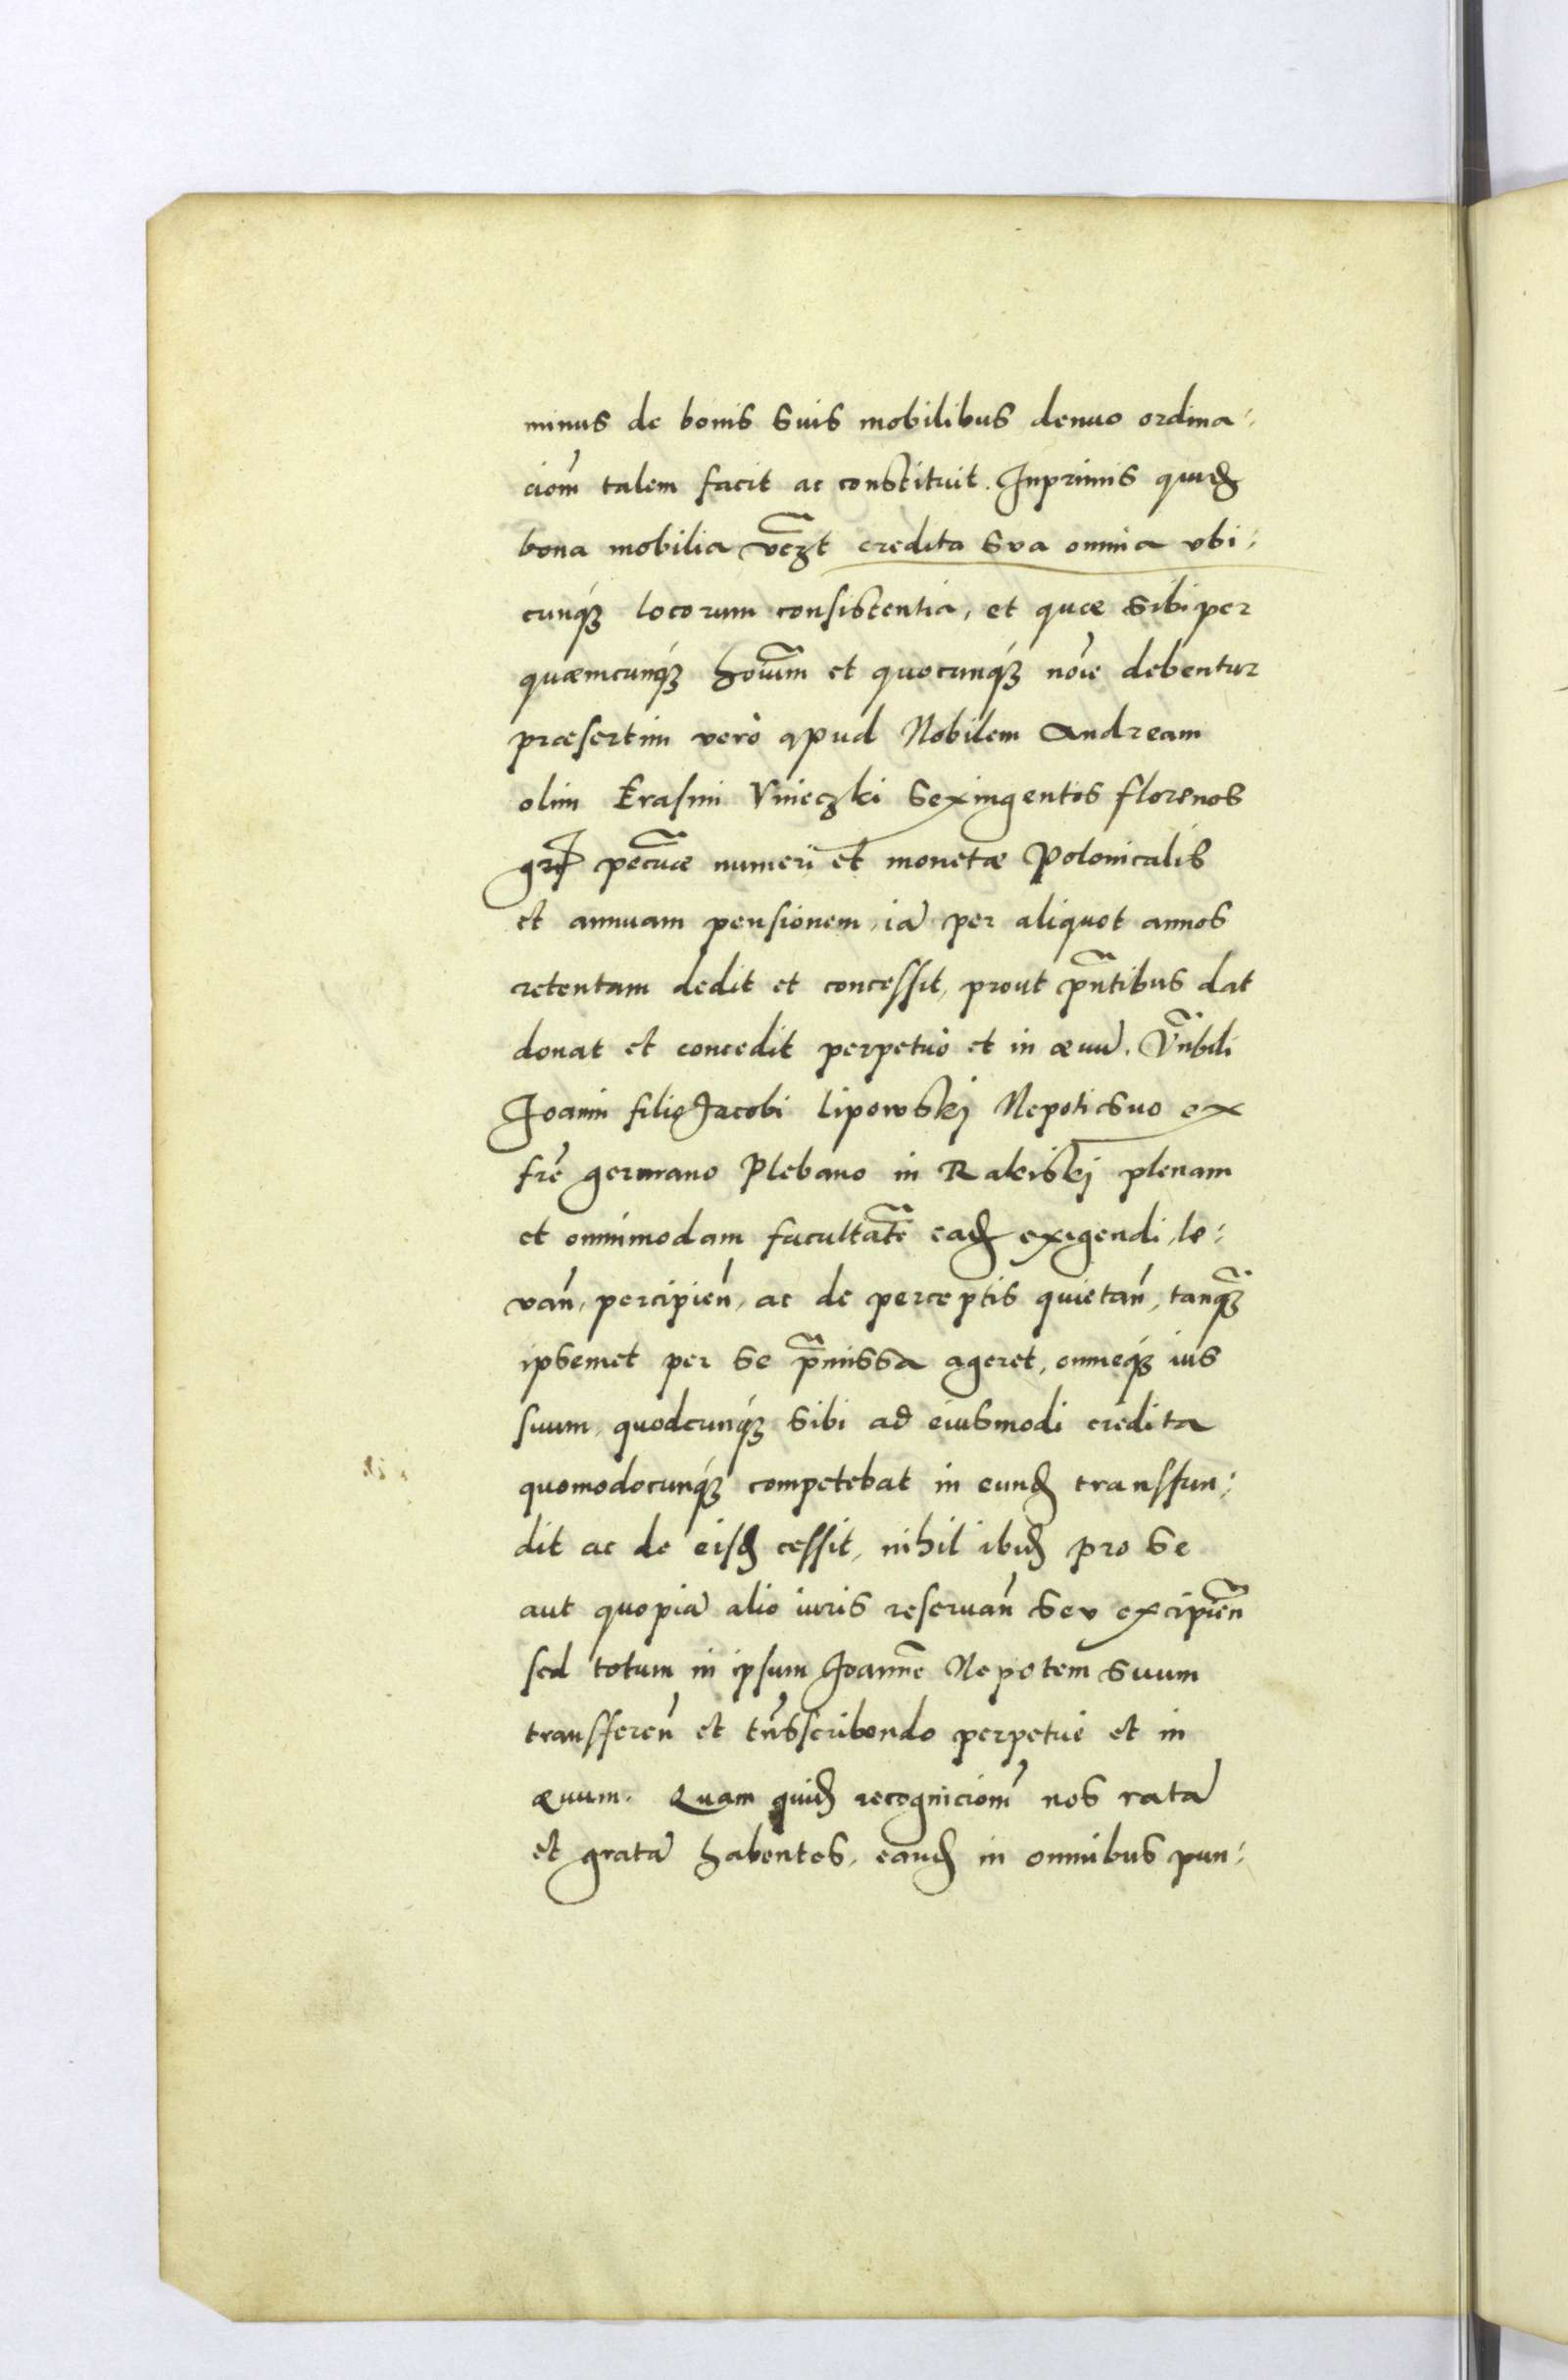 minus de bonis suis mobilibus denuo ordina:
ciom̃ talem facit ac constituit. Inprimis quidẽ
bona mobilia vczt credita sua omnia vbi:
cunq́ʒ locorum consistentia, et quæ sibi per
quæmcunq́ʒ hoĩem et quocunq́ʒ noĩe debentur
præsertim verò apud Nobilem Andream
olim Erasmi Vnieczki sexingentos florenos
pecũiæ numeri et monetæ Polonicalis
et annuam pensionem, iã per aliquot annos
retentam dedit et concessit, prout pñtibus dat
donat et concedit perpetuò et in æuũ. Vñbili
Joanni filio Jacobi Lipowskj Nepoti suo ex
frẽ germano Plebano in Rakiskj plenam
et omnimodam facultatẽ eadẽ exigendi, le:
vañ, percipieñ, ac de perceptis quietañ, tanq̃ʒ
ipsemet per se p̃missa ageret, omneq́ʒ ius
suum, quodcunq́ʒ sibi ad eiusmodi credita
quomodocunq́ʒ competebat in eundẽ transfun:
dit ac de eisdẽ cessit, nihil ibidẽ pro se
aut quopiã alio iuris reseruañ seu excipieñ
sed totum in ipsum Joannẽ Nepotem suum
transfereñ et tñsscribendo perpetuè et in
æuum. Quam quidẽ recogniciom̃ nos ratã
et gratã habentes, eandẽ in omnibus pun: